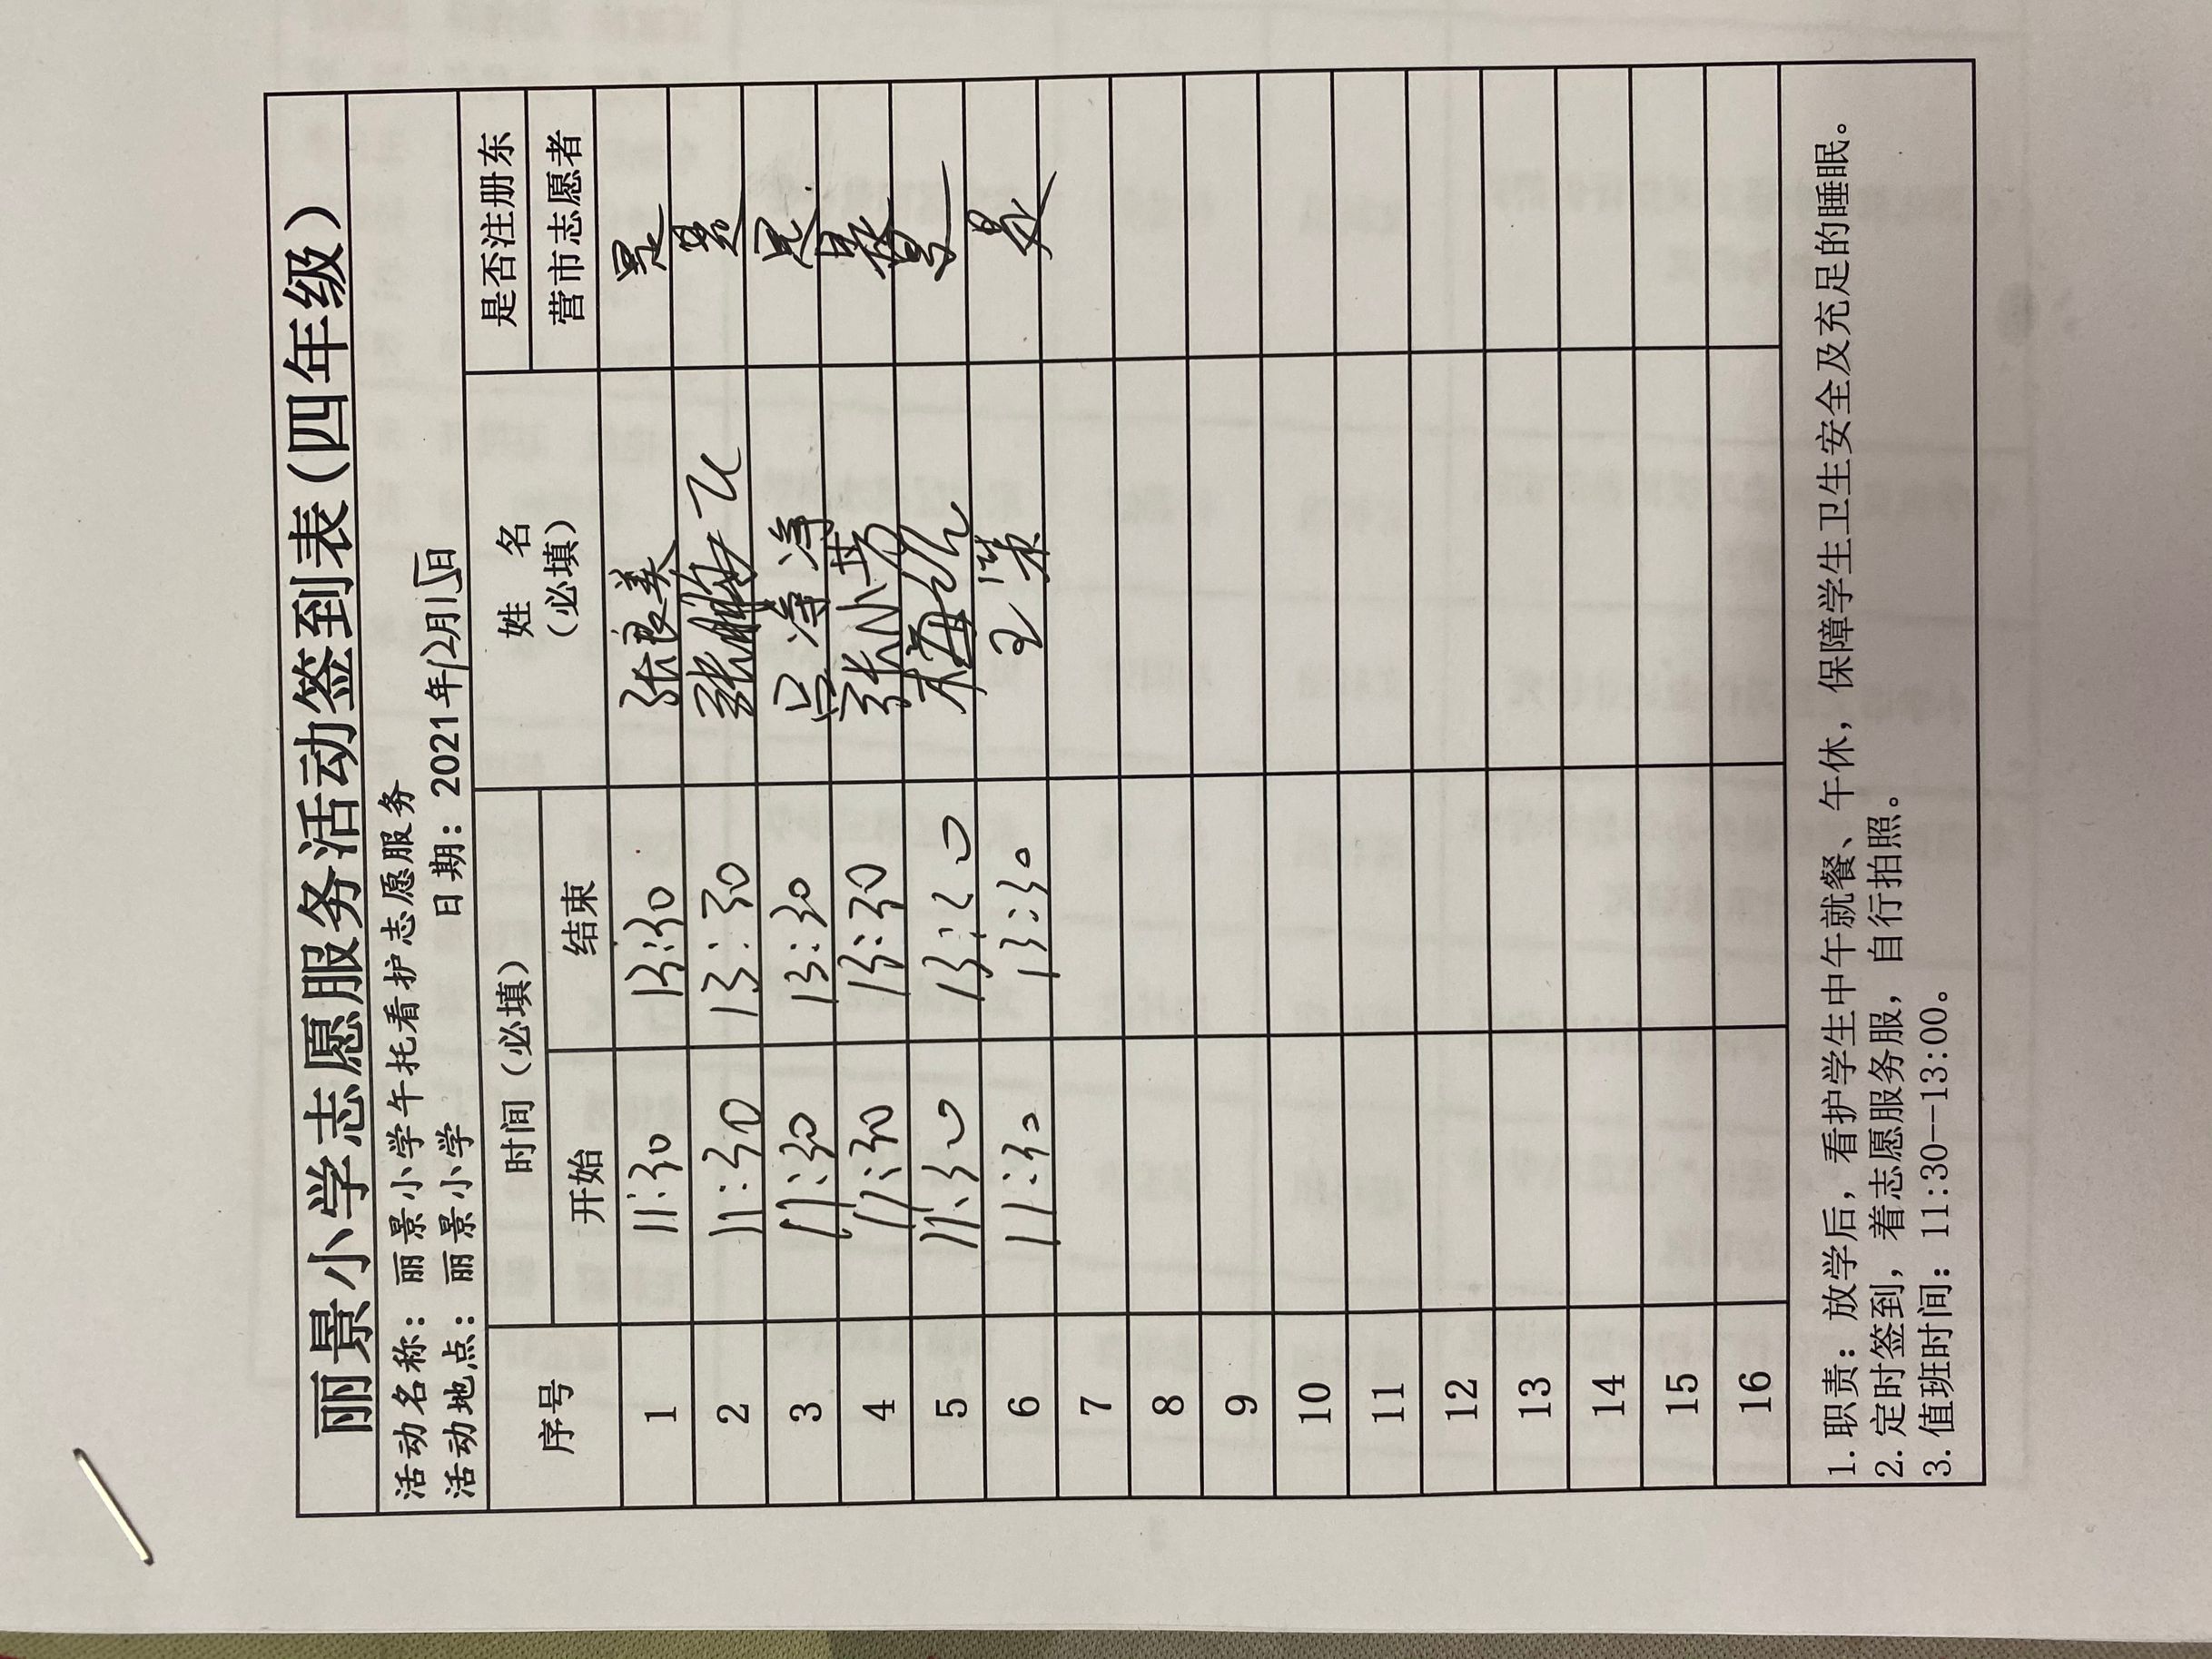 丽景小学志愿服务活动签到表(四年级)
活动名称：丽景小学午托看护志愿服务
活动地点：丽景小学 日期：2021年12月15日
序号 时间（必填） 姓 名（必填） 是否注册东营市志愿者
开始 结束
1 11:30 13:30 张良美 是
2 11:30 13:30 是
3 11:30 13:30 吕净净 是
4 11:30 13:30 张小 是
5 11:30 13:20 梅
6 11:30 13:30 王 是
7
8
9
10
11
12
13
14
15
16
1.职责：放学后，看护学生中午就餐、午休，保障学生卫生安全及充足的睡眠。
2.定时签到，着志愿服务服，自行拍照。
3.值班时间：11:30--13:00。